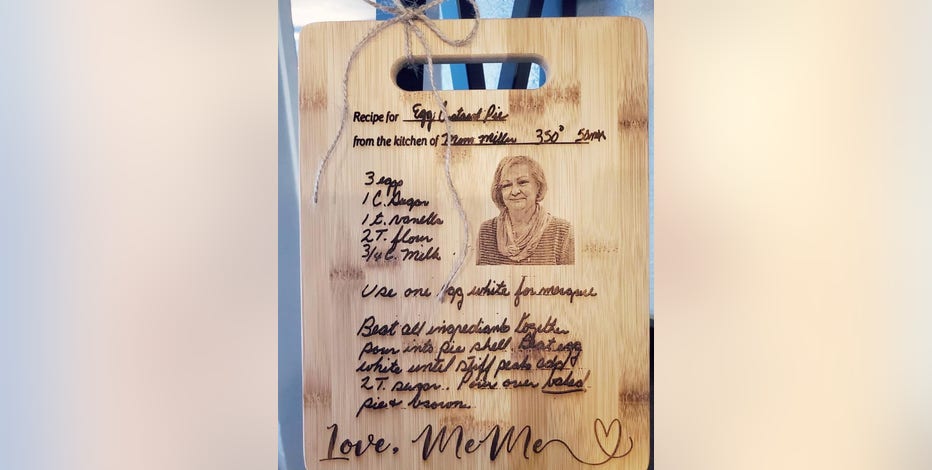 Recipe for Egg Custard Pie
from the kitchen of Mom Miller 350° 50min
3 eggs
1 C. Sugar
1 t. vanella
2 T. flour
3/4 C. Milk
Use one egg white for merque
Beat all ingredients together
pour into pie shell. Beat egg
white until stiff peaks add
2 T. sugar. Pour over baked
pie & brown.
Love, MeMe